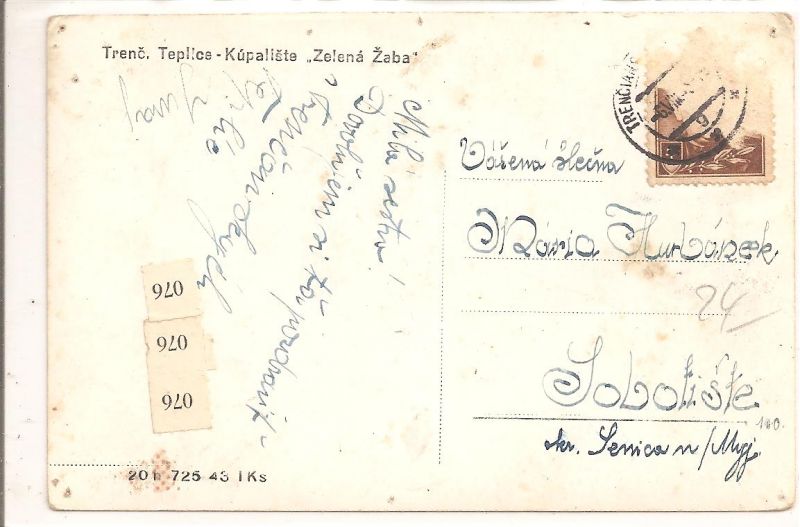 Trenč. Teplice - Kúpalište „Zelená Žaba"
Milá sestra!
Dovoľujem si ťa
pozdraviť
z Trenčianskych
Teplíc
Juraj
TRENČIANS
Vážená slečna
Mária Hurbánek
24/
Sobotište
100.
okr. Senica n/Myj.
076
076
076
20 h 725 43 1 Ks